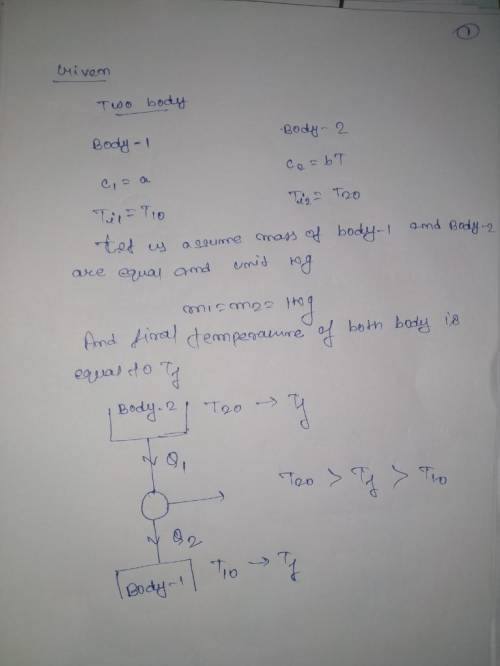 1
Given
Two body
Body-1 Body-2
c1 = a c2 = bT
Ti1 = T10 Ti2 = T20
Let us assume mass of body-1 and Body-2
are equal and unit kg
m1 = m2 = 1kg
And final temperature of both body is
equal to Tf
Body-2 T20 → Tf
Q1
T20 > Tf > T10
Q2
Body-1 T10 → Tf